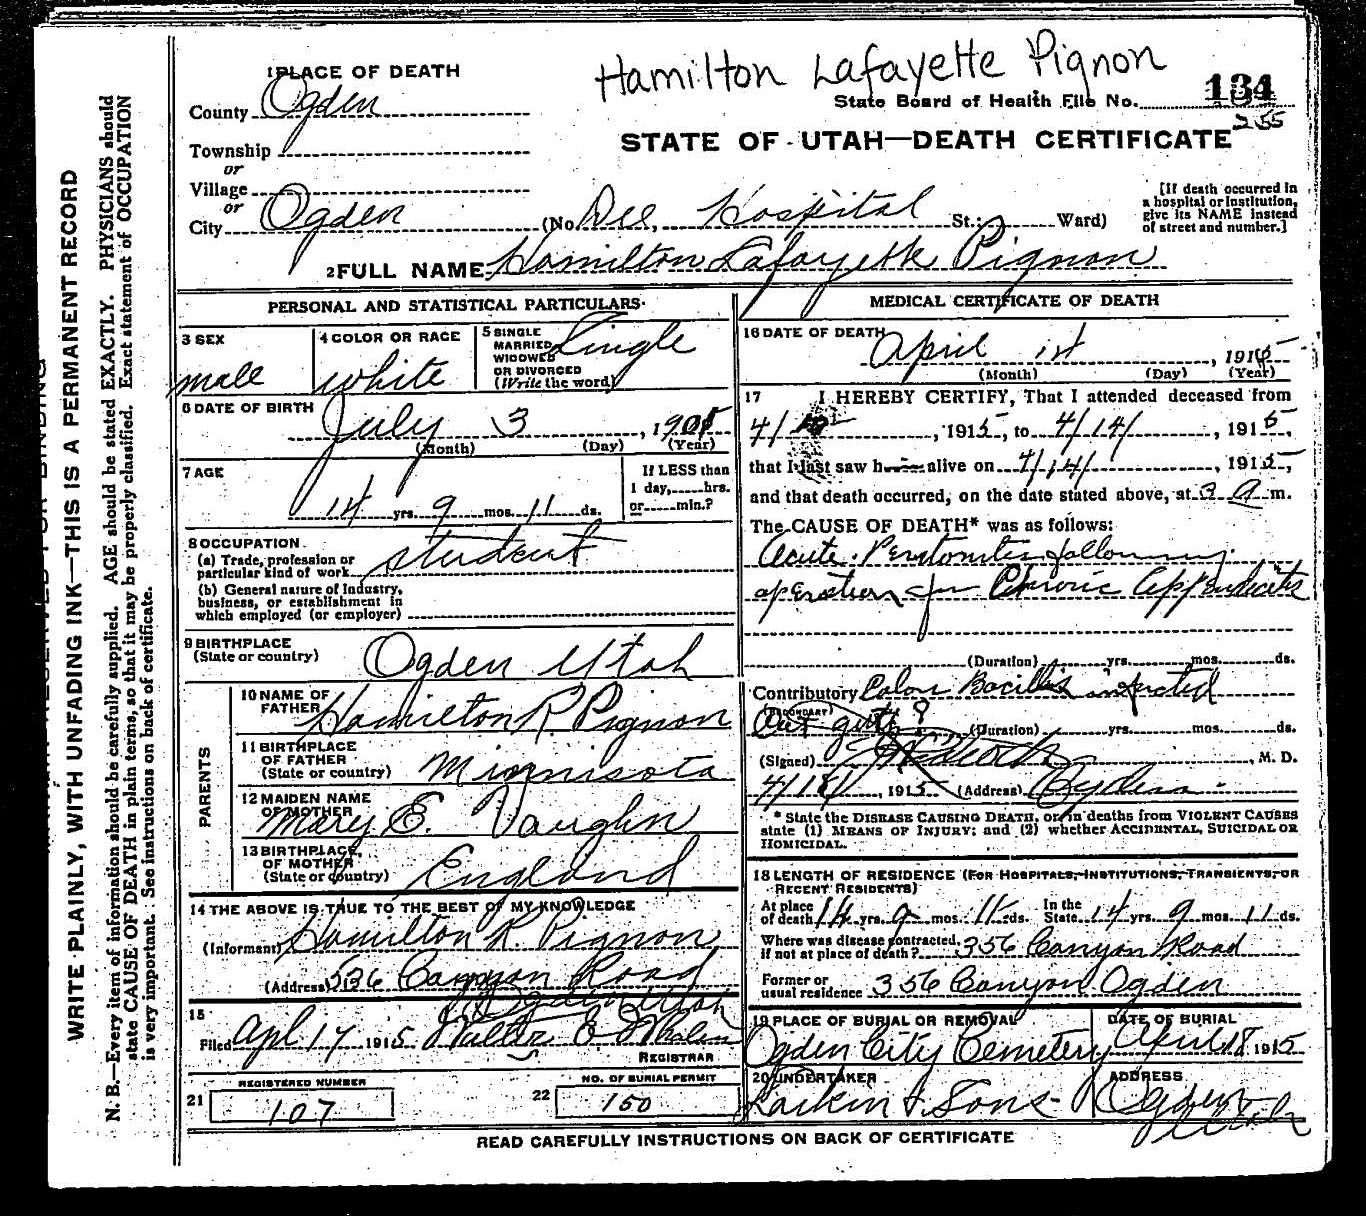 Hamilton Lafayette Pignon
1 PLACE OF DEATH
State Board of Health File No. 134
255
County Ogden
STATE OF UTAH—DEATH CERTIFICATE
Township
or
Village
or
City Ogden (No. Dee, Hospital St.; Ward)
[If death occurred in a hospital or institution, give its NAME instead of street and number.]
2 FULL NAME Hamilton Lafayette Pignon
PERSONAL AND STATISTICAL PARTICULARS
3 SEX male
4 COLOR OR RACE white
5 SINGLE MARRIED, WIDOWED OR DIVORCED (Write the word) Single
6 DATE OF BIRTH July 3, 190
(Month) (Day) (Year)
7 AGE 14 yrs. 9 mos. 11 ds.
If LESS than 1 day, hrs. or min.?
8 OCCUPATION
(a) Trade, profession or particular kind of work student
(b) General nature of industry, business, or establishment in which employed (or employer)
9 BIRTHPLACE (State or country) Ogden Utah
PARENTS
10 NAME OF FATHER Hamilton R. Pignon
11 BIRTHPLACE OF FATHER (State or country) Minnisota
12 MAIDEN NAME OF MOTHER Mary E. Vaughn
13 BIRTHPLACE, OF MOTHER (State or country) England
14 THE ABOVE IS TRUE TO THE BEST OF MY KNOWLEDGE
(Informant) Hamilton R Pignon
(Address) 536 Canyon Road
Ogden Utah
15
Filed Apl 17 1915 Walter E. Whalen
REGISTRAR
REGISTERED NUMBER
21 107
NO. OF BURIAL PERMIT
22 150
MEDICAL CERTIFICATE OF DEATH
16 DATE OF DEATH April 14, 1915
(Month) (Day) (Year)
17 I HEREBY CERTIFY, That I attended deceased from
4/ , 1915, to 4/14/, 1915,
that I last saw him alive on 4/14/, 1915,
and that death occurred, on the date stated above, at 3 a m.
The CAUSE OF DEATH* was as follows:
Acute Peritonitis following
operation for Chronic Appendicitis
(Duration) yrs. mos. ds.
Contributory Colon Bacillis infected
(SECONDARY)
Cut gut? (Duration) yrs. mos. ds.
(Signed) , M. D.
4/18/, 1915 (Address) Ogden
* State the DISEASE CAUSING DEATH, or, in deaths from VIOLENT CAUSES state (1) MEANS OF INJURY; and (2) whether ACCIDENTAL, SUICIDAL OR HOMICIDAL.
18 LENGTH OF RESIDENCE (FOR HOSPITALS, INSTITUTIONS, TRANSIENTS, OR RECENT RESIDENTS)
At place of death 14 yrs. 9 mos. 11 ds. In the State 14 yrs. 9 mos. 11 ds.
Where was disease contracted, if not at place of death? 356 Canyon Road
Former or usual residence 356 Canyon Ogden
19 PLACE OF BURIAL OR REMOVAL
Ogden City Cemetery
DATE OF BURIAL
April 18 1915
20 UNDERTAKER
Larkin & Sons
ADDRESS
Ogden Utah
READ CAREFULLY INSTRUCTIONS ON BACK OF CERTIFICATE
WRITE PLAINLY, WITH UNFADING INK—THIS IS A PERMANENT RECORD
N. B.—Every item of information should be carefully supplied. AGE should be stated EXACTLY. PHYSICIANS should
state CAUSE OF DEATH in plain terms, so that it may be properly classified. Exact statement of OCCUPATION
is very important. See instructions on back of certificate.